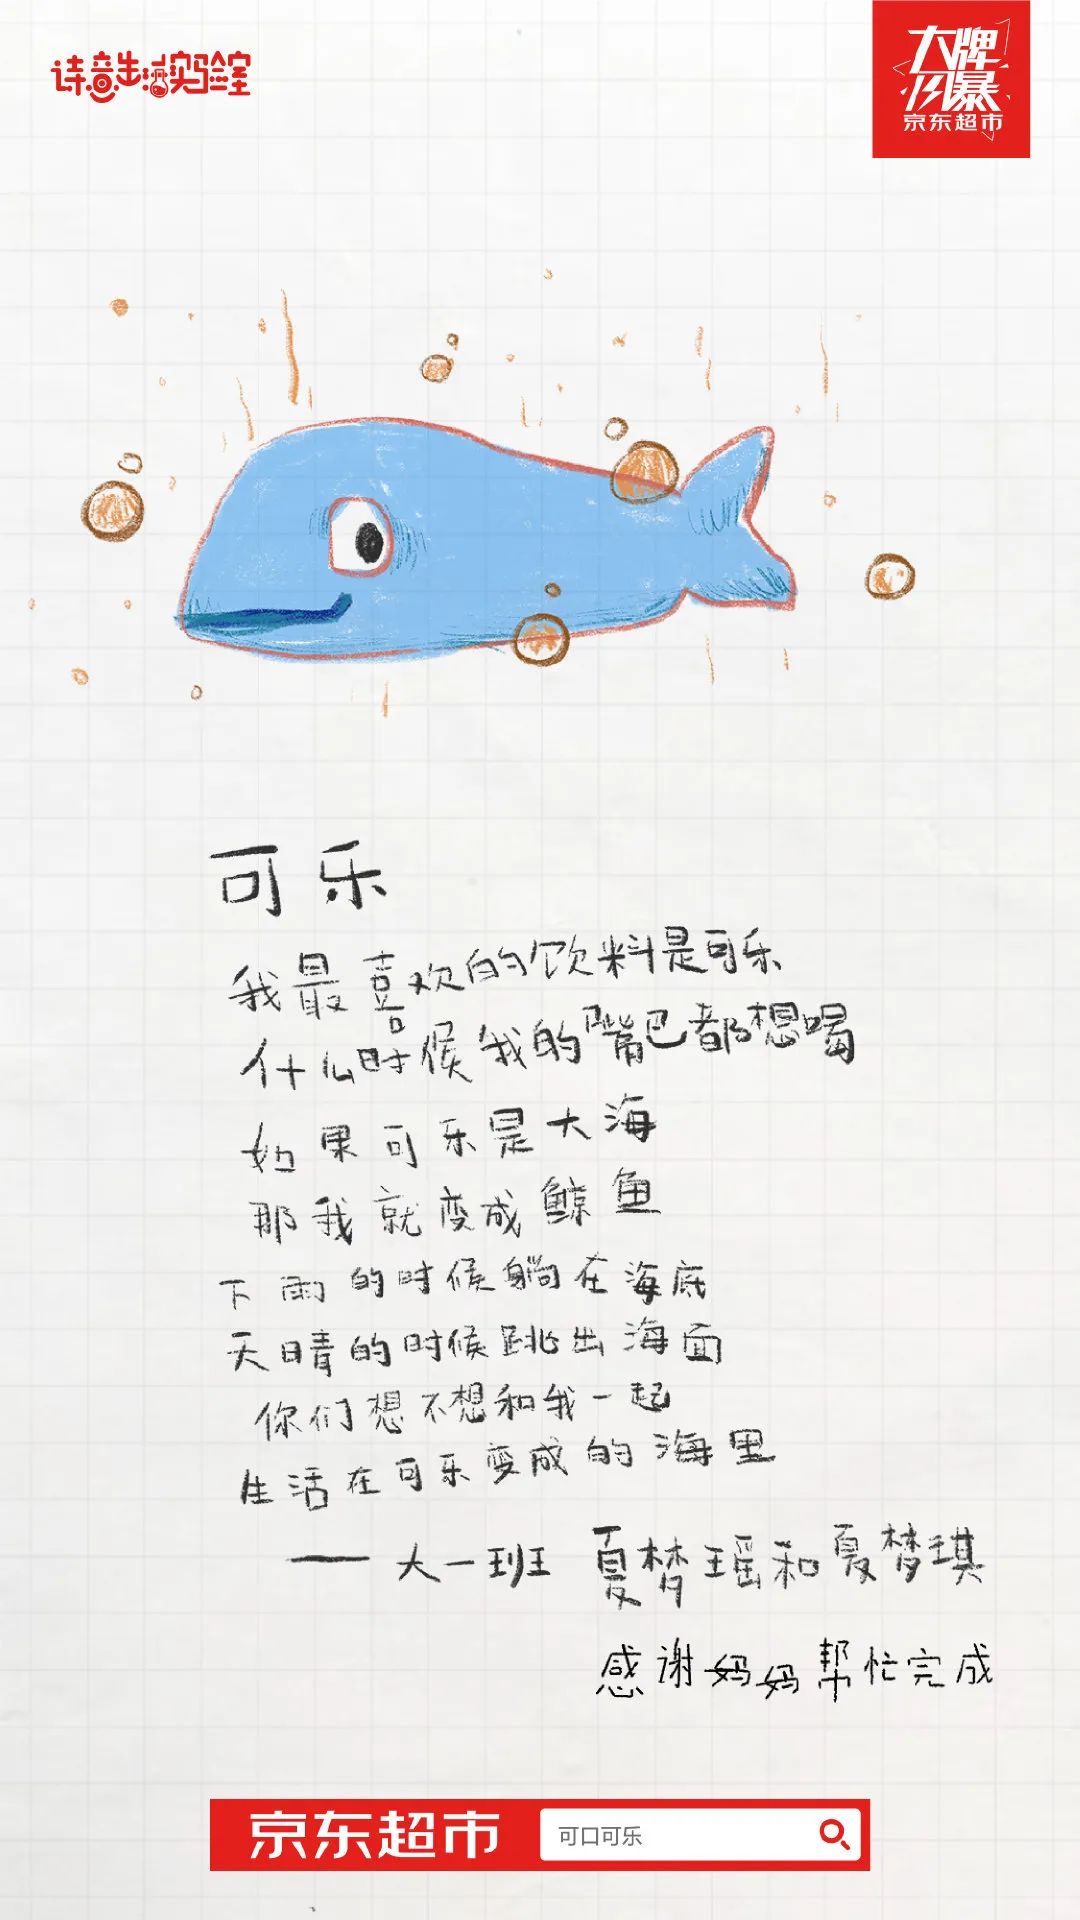 诗音生活实验室
大牌
风暴
京东超市
可乐
我最喜欢的饮料是可乐
什么时候我的嘴巴都想喝
如果可乐是大海
那我就变成鲸鱼
下雨的时候躺在海底
天晴的时候跳出海面
你们想不想和我一起
生活在可乐变成的海里
——大一班 夏梦瑶和夏梦琪
感谢妈妈帮忙完成
京东超市 可口可乐